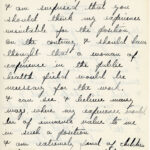 I am surprised that you
should think my experience
unsuitable for the position,
on the contrary I should have
thought that a woman of
experience in the public
health field would be
necessary for the work.
I can & believe many
ways where my experience would
be of immense value to me
in such a position
I am extremely fond of children